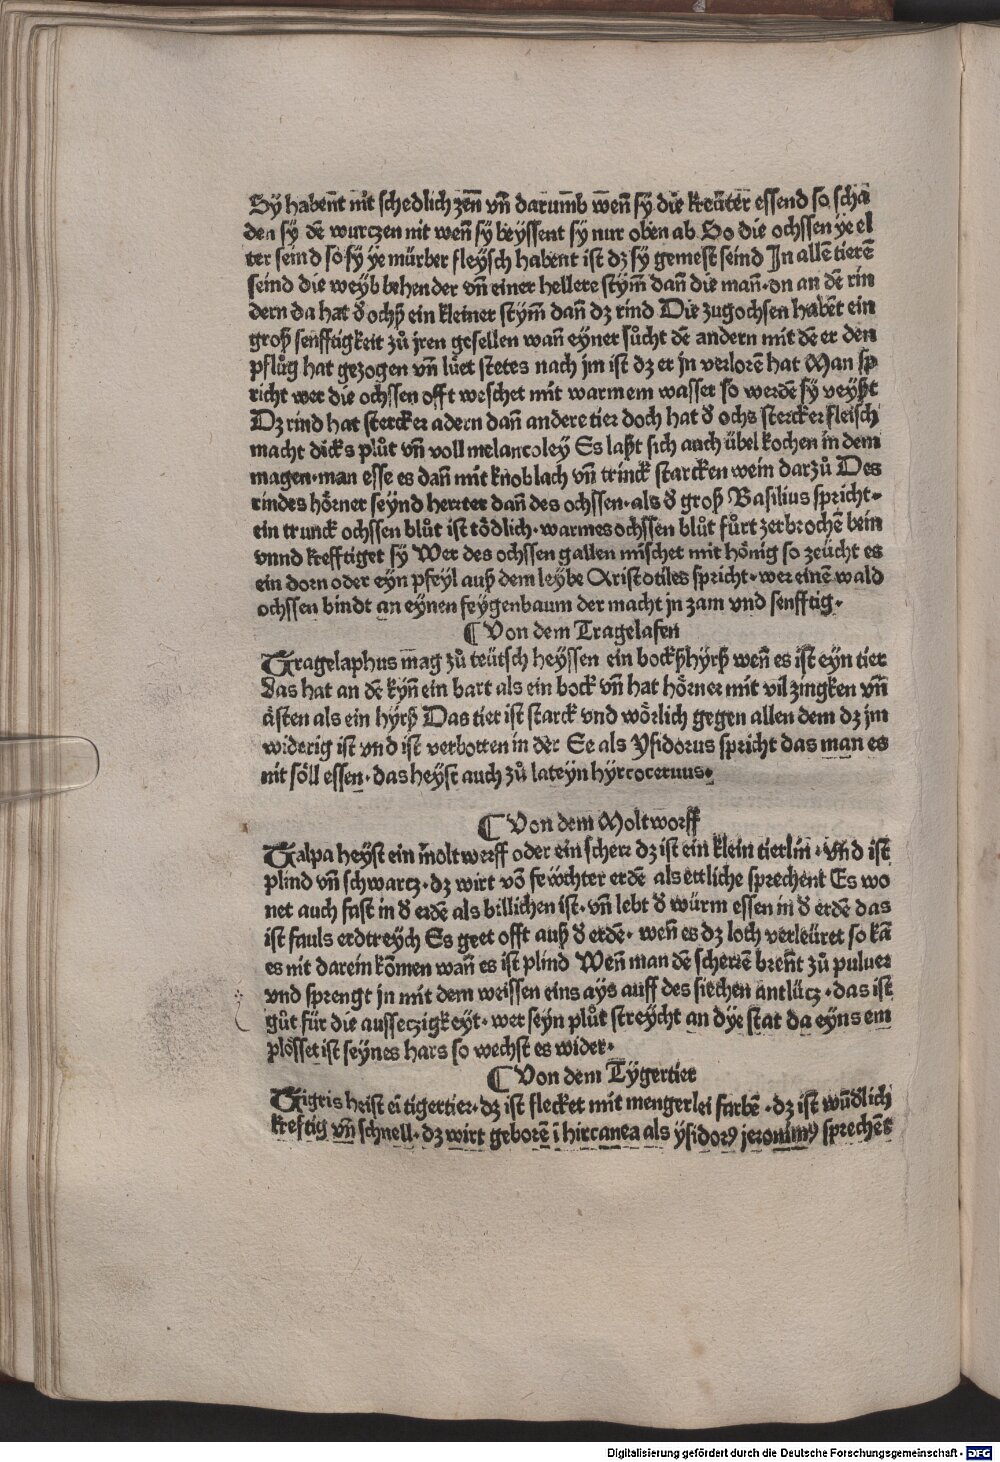 Sy habent nit schedlich zen̄ vn̄ darumb wen̄ sy die kreüter essend so scha
den sy dē wurczen nit wen̄ sy beyssent sy nur oben ab So die ochssen ye el
ter seind so sy ye mürber fleysch habent ist dz sy gemest seind In allē tierē
seind die weyb behender vn̄ einer hellere stym̄ dan̄ die man̄· on an dē rin
dern da hat d̕ ochß ein kleiner stym̄ dan̄ dz rind Die zugochsen habēt ein
groß senfftigkeit zů jren gesellen wan̄ eyner sůcht dē andern mit dē er den
pflůg hat gezogen vn̄ lůet stetes nach jm ist dz er jn verlorē hat Man sp
richt wer die ochssen offt weschet mit warmem wasser so werdē sy veyßt
Dz rind hat stercker adern dan̄ andere tier doch hat d̕ ochs stercker fleisch
macht dicks plůt vn̄ voll melancoley Es laßt sich auch übel kochen in dem
magen· man esse es dan̄ mit knoblach vn̄ trinck starcken wein darzů Des
rindes hörner seynd herrter dan̄ des ochssen· als d̕ groß Basilius spricht·
ein trunck ochssen blůt ist tödlich· warmes ochssen blůt fürt zerbrochē bein
vnnd krefftiget sy Wer des ochssen gallen mischet mit hönig so zeücht es
ein dorn oder eyn pfeyl auß dem leybe Aristotiles spricht· wer einē wald
ochssen bindt an eynen feygenbaum der macht jn zam vnd senfftig·
¶ Von dem Tragelafen
Tragelaphus mag zů teütsch heyssen ein bockßhyrß wen̄ es ist eyn tier
das hat an dē kyn̄ ein bart als ein bock vn̄ hat hörner mit vil zingken vn̄
ästen als ein hyrß Das tier ist starck vnd wörlich gegen allen dem dz jm
widerig ist vnd ist verbotten in der Ee als Ysidorus spricht das man es
nit söll essen· das heyst auch zů lateyn hyrcoceruus·
¶ Von dem Moltworff
Talpa heyst ein moltwerff oder ein scherr dz ist ein klein tierlin· vnd ist
plind vn̄ schwartz· dz wirt vō feẅchter erdē als ettliche sprechent Es wo
net auch fast in d̕ erdē als billichen ist· vn̄ lebt d̕ würm essen in d̕ erdē das
ist fauls erdtreych Es geet offt auß d̕ erdē· wen̄ es dz loch verleüret so kā
es nit darein kōmen wan̄ es ist plind Wen̄ man dē scherrē bren̄t zů puluer
vnd sprengt jn mit dem weissen eins ays auff des siechen antlütz· das ist
gůt für die ausseczigkeyt· wer seyn plůt streycht an dye stat da eyns em
plösset ist seynes hars so wechst es wider·
¶ Von dem Tygertier
Tigris heist eī tigertier· dz ist flecket mit mengerlei farbē· dz ist wūd̕lich
kreftig vn̄ schnell· dz wirt geborē ī hircanea als ysidorꝰ jeronimꝰ sprechēt
Digitalisierung gefördert durch die Deutsche Forschungsgemeinschaft - DFG